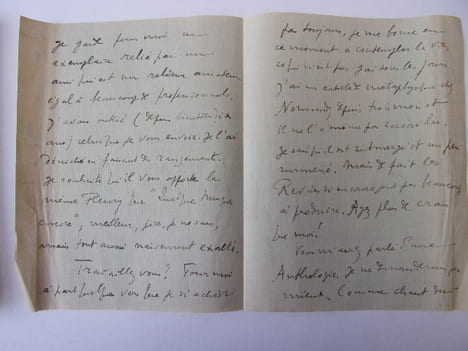 Je garde pour moi un
exemplaire relié par un
ami qui est un relieur amateur
égal à beaucoup de professionnels.
J'avais oublié (depuis bientôt six
ans) celui que je vous envoie. Je l'ai
déniché en faisant des rangements.
Je souhaite qu'il vous apporte le
même Fleury que "Quelque
encore", meilleur, pire, je ne sais,
mais tout aussi naïvement exalté.
Travaillez-vous? Pour moi
à part quelques vers que je n'achève
pas toujours, je me borne en
ce moment à contempler la vie,
ce qui n'est pas gai tous les jours
J'ai un article métaphysique chez
depuis trois mois et
il ne l'a même pas encore lu.
Je sais qu'il est submergé et un peu
surmené. Mais de fait les
Revues n'encouragent pas beaucoup
à produire. Ayez plus de cran
que moi!
Vous m'avez parlé d'une
Anthologie. Je ne demanderais pas
mieux. Comme chant